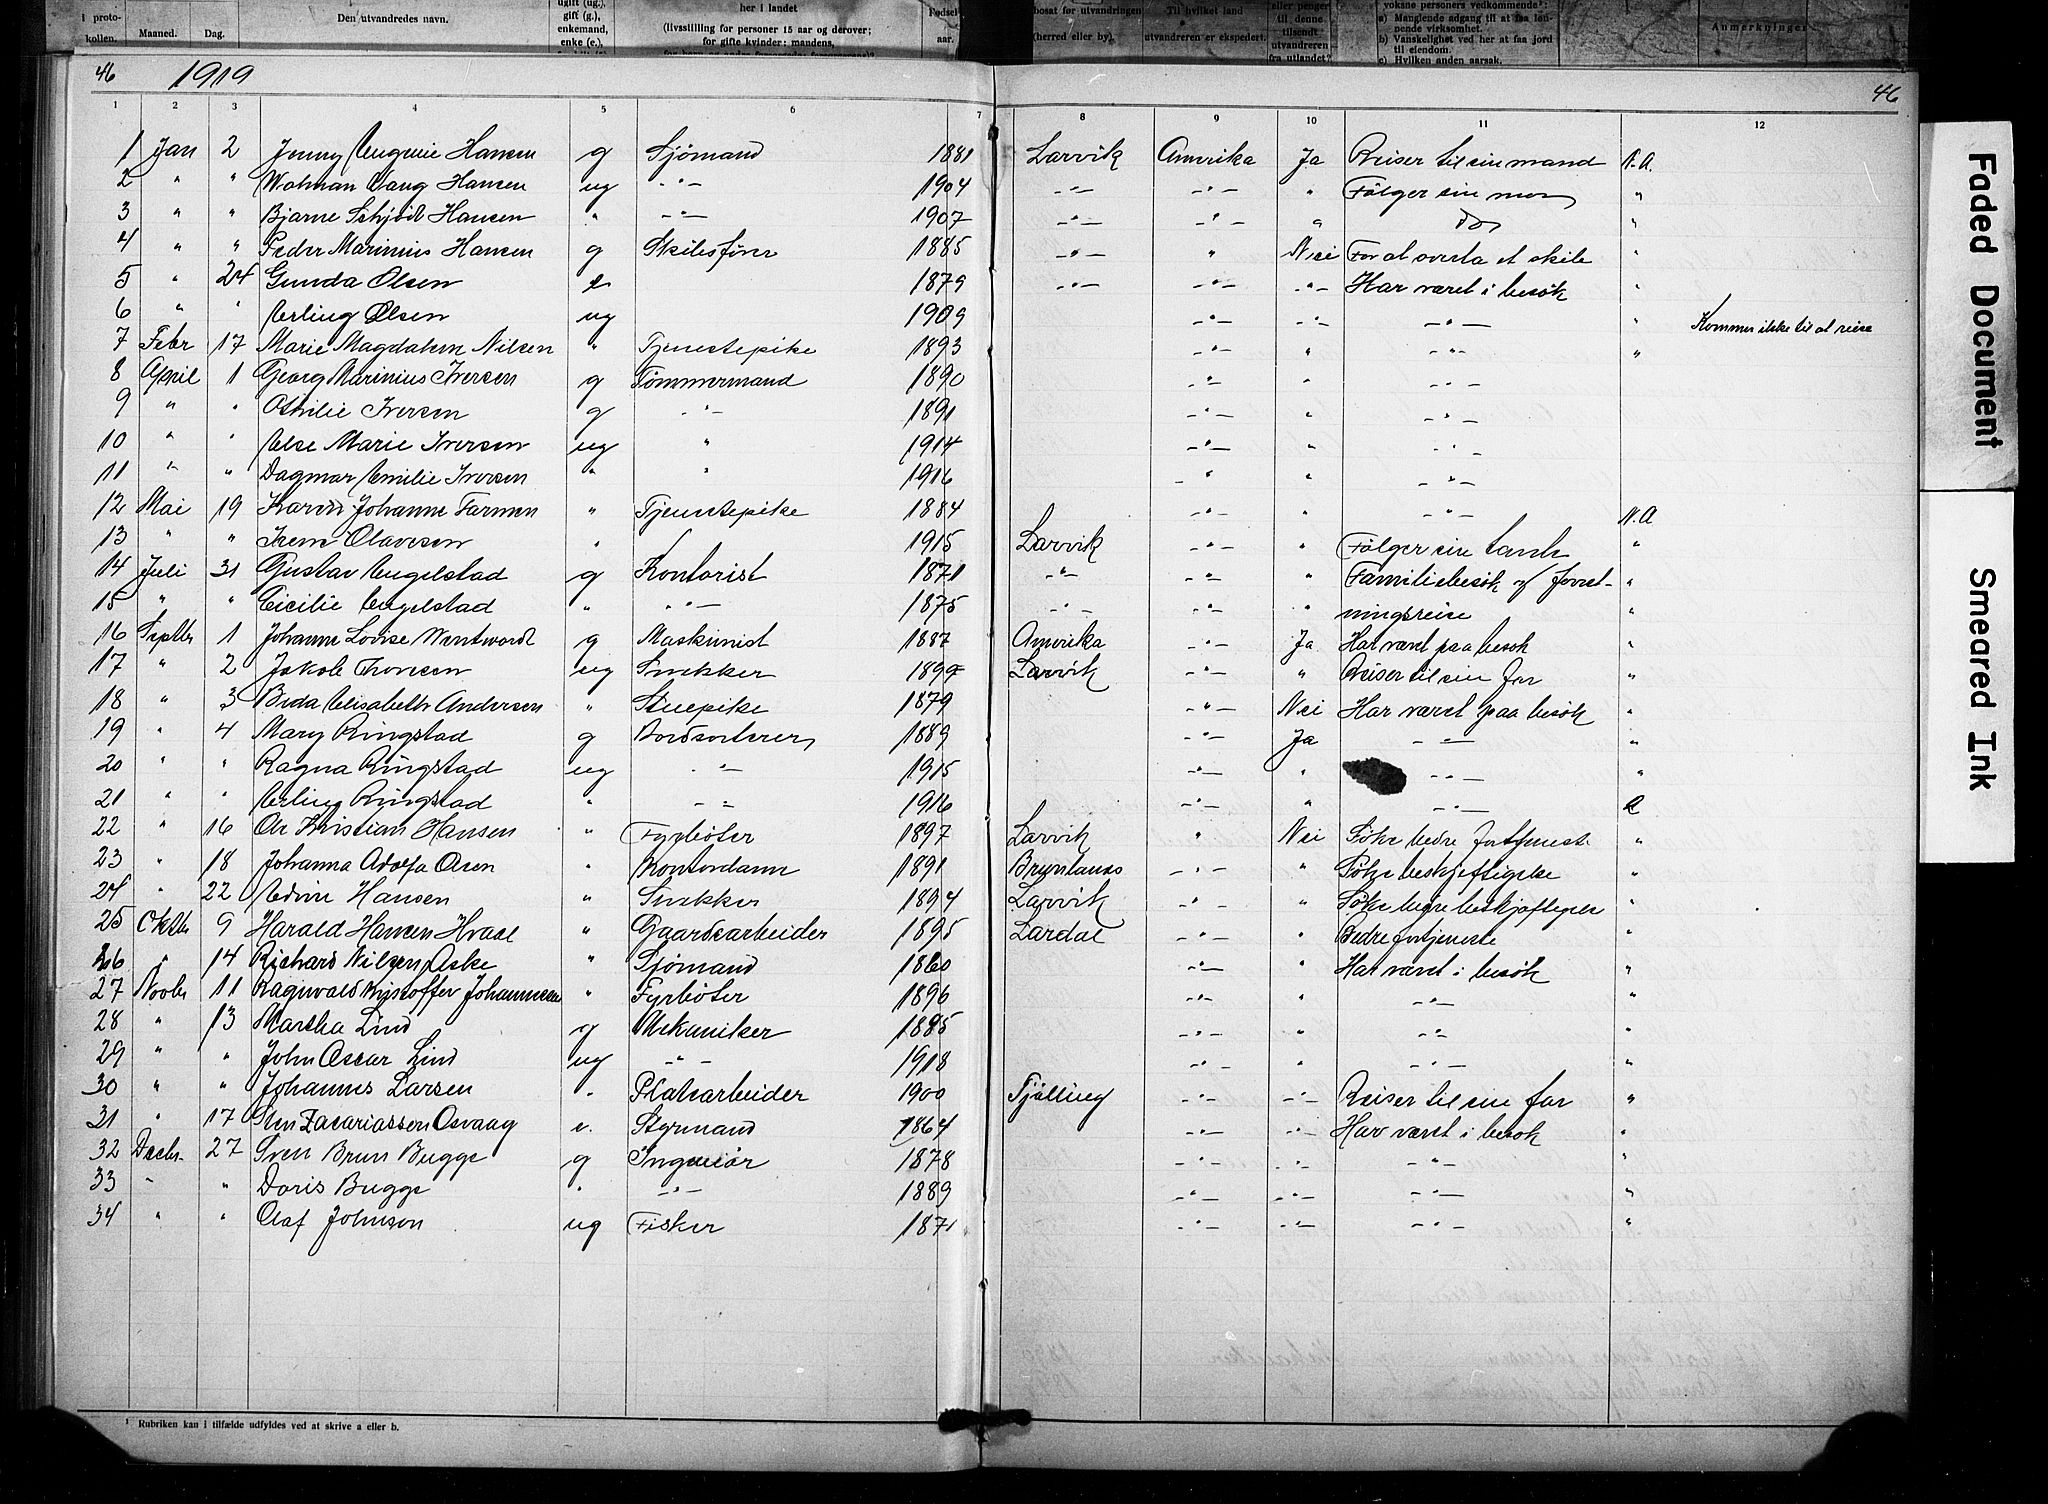 i proto- kollen. Maaned. Dag. Den utvandredes navn. ugift (ug.), gift (g.), enkemand, enke (e.), her i landet (livsstilling for personer 15 aar og derover; for gifte kvinder: mandens, Fødsels- aar. bosat før utvandringen (herred eller by). Til hvilket land utvandreren er ekspedert. eller penger til denne tilsendt utvandreren fra utlandet? voksne personers vedkommende: a) Manglende adgang til at faa løn- nende virksomhet. b) Vanskelighet ved her at faa jord til eiendom. c) Hvilken anden aarsak. Anmerkninger
46 1919 46
1 2 3 4 5 6 7 8 9 10 11 12
1 Jan 2 Jenny Eugenie Hansen g Sjömand 1881 Larvik Amerika Ja Reiser til sin mand N.A.
2 " " Wolman Vang Hansen ug -"- 1904 -"- -"- " Fölger sin mor "
3 " " Bjarne Schjödt Hansen " -"- 1907 -"- -"- " do "
4 " " Peder Marinius Hansen g Skibsfører 1885 -"- " Nei For at overta et skib "
5 " 24 Gunda Olsen e 1879 -"- -"- -"- Har været i besök "
6 " Erling Olsen ug 1909 -"- -"- -"- " Kommer ikke til at reise
7 Febr 17 Marie Magdalene Nilsen " Tjenestepike 1893 -"- " -"- "
8 April 1 Georg Marinius Iversen g Tømmermand 1890 -"- " -"-
9 " " Othilie Iversen g -"- 1891 -"- " -"-
10 " " Else Marie Iversen ug " 1914 -"- " -"-
11 " " Dagmar Emilie Iversen " " 1916 -"- " -"-
12 Mai 19 Karen Johanne Farmen " Tjenestepike 1884 -"- " -"- N.A
13 " " Irene Olavesen " 1915 Larvik -"- " Fölger sin tante "
14 Juli 31 Gustav Engelstad g Kontorist 1871 -"- -"- " Familiebesök og forret- "
15 " " Cicilie Engelstad " -"- 1875 -"- -"- " ningsreise "
16 Septbr 1 Johanne Lovise Wentwordt g Maskinist 1887 Amerika -"- Ja Har været paa besök "
17 " 2 Jakob Iversen ug Snekker 1899 Larvik -"- " Reiser til sin far "
18 " 3 Beda Elisabeth Andersen " Stuepike 1879 -"- Nei Har været paa besök "
19 " 4 Mary Ringstad g Bordsorterer 1889 -"- Ja -"- "
20 " " Ragna Ringstad ug -"- 1915 -"- " -"- "
21 " " Erling Ringstad " -"- 1916 -"- " -"- "
22 " 16 Ole Kristian Hansen " Fyrböter 1897 Larvik " Nei Söke bedre fortjeneste "
23 " 18 Johanna Adolfa Olsen " Kontordame 1891 Brunlanes -"- " Söke beskjeftigelse "
24 " 22 Edvin Hansen " Snekker 1894 Larvik -"- " Söke bedre beskjeftigelse "
25 Oktbr 9 Harald Hansen Hvaal " Gaardsarbeider 1895 Lardal -"- " Bedre fortjeneste "
26 " 14 Richard Nilsen Aske " Sjömand 1860 -"- " Har været i besök "
27 Novbr 11 Ragnvald Kristoffer Johannesen " Fyrböter 1896 -"- " -"- "
28 " 13 Martha Lind g Mekaniker 1885 -"- " -"- "
29 " " John Oscar Lind ug -"- 1918 -"- " -"- "
30 " " Johannes Larsen " Platsarbeider 1900 Tjölling -"- -"- Reiser til sin far "
31 " 17 Sten Zacariassen Osvaag e. Styrmand 1864 -"- -"- Har været i besök "
32 Decbr. 27 Sven Brun Bugge g Ingeniör 1878 -"- -"- -"- "
33 " " Doris Bugge " -"- 1889 -"- -"- -"- "
34 " " Olaf Johnson ug Fisker 1871 -"- -"- -"- "
¹ Rubriken kan i tilfælde udfyldes ved at skrive a eller b.
Faded Document
Smeared Ink